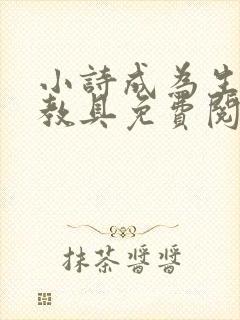 小詩成為生
教具免費閱
抹茶醬醬